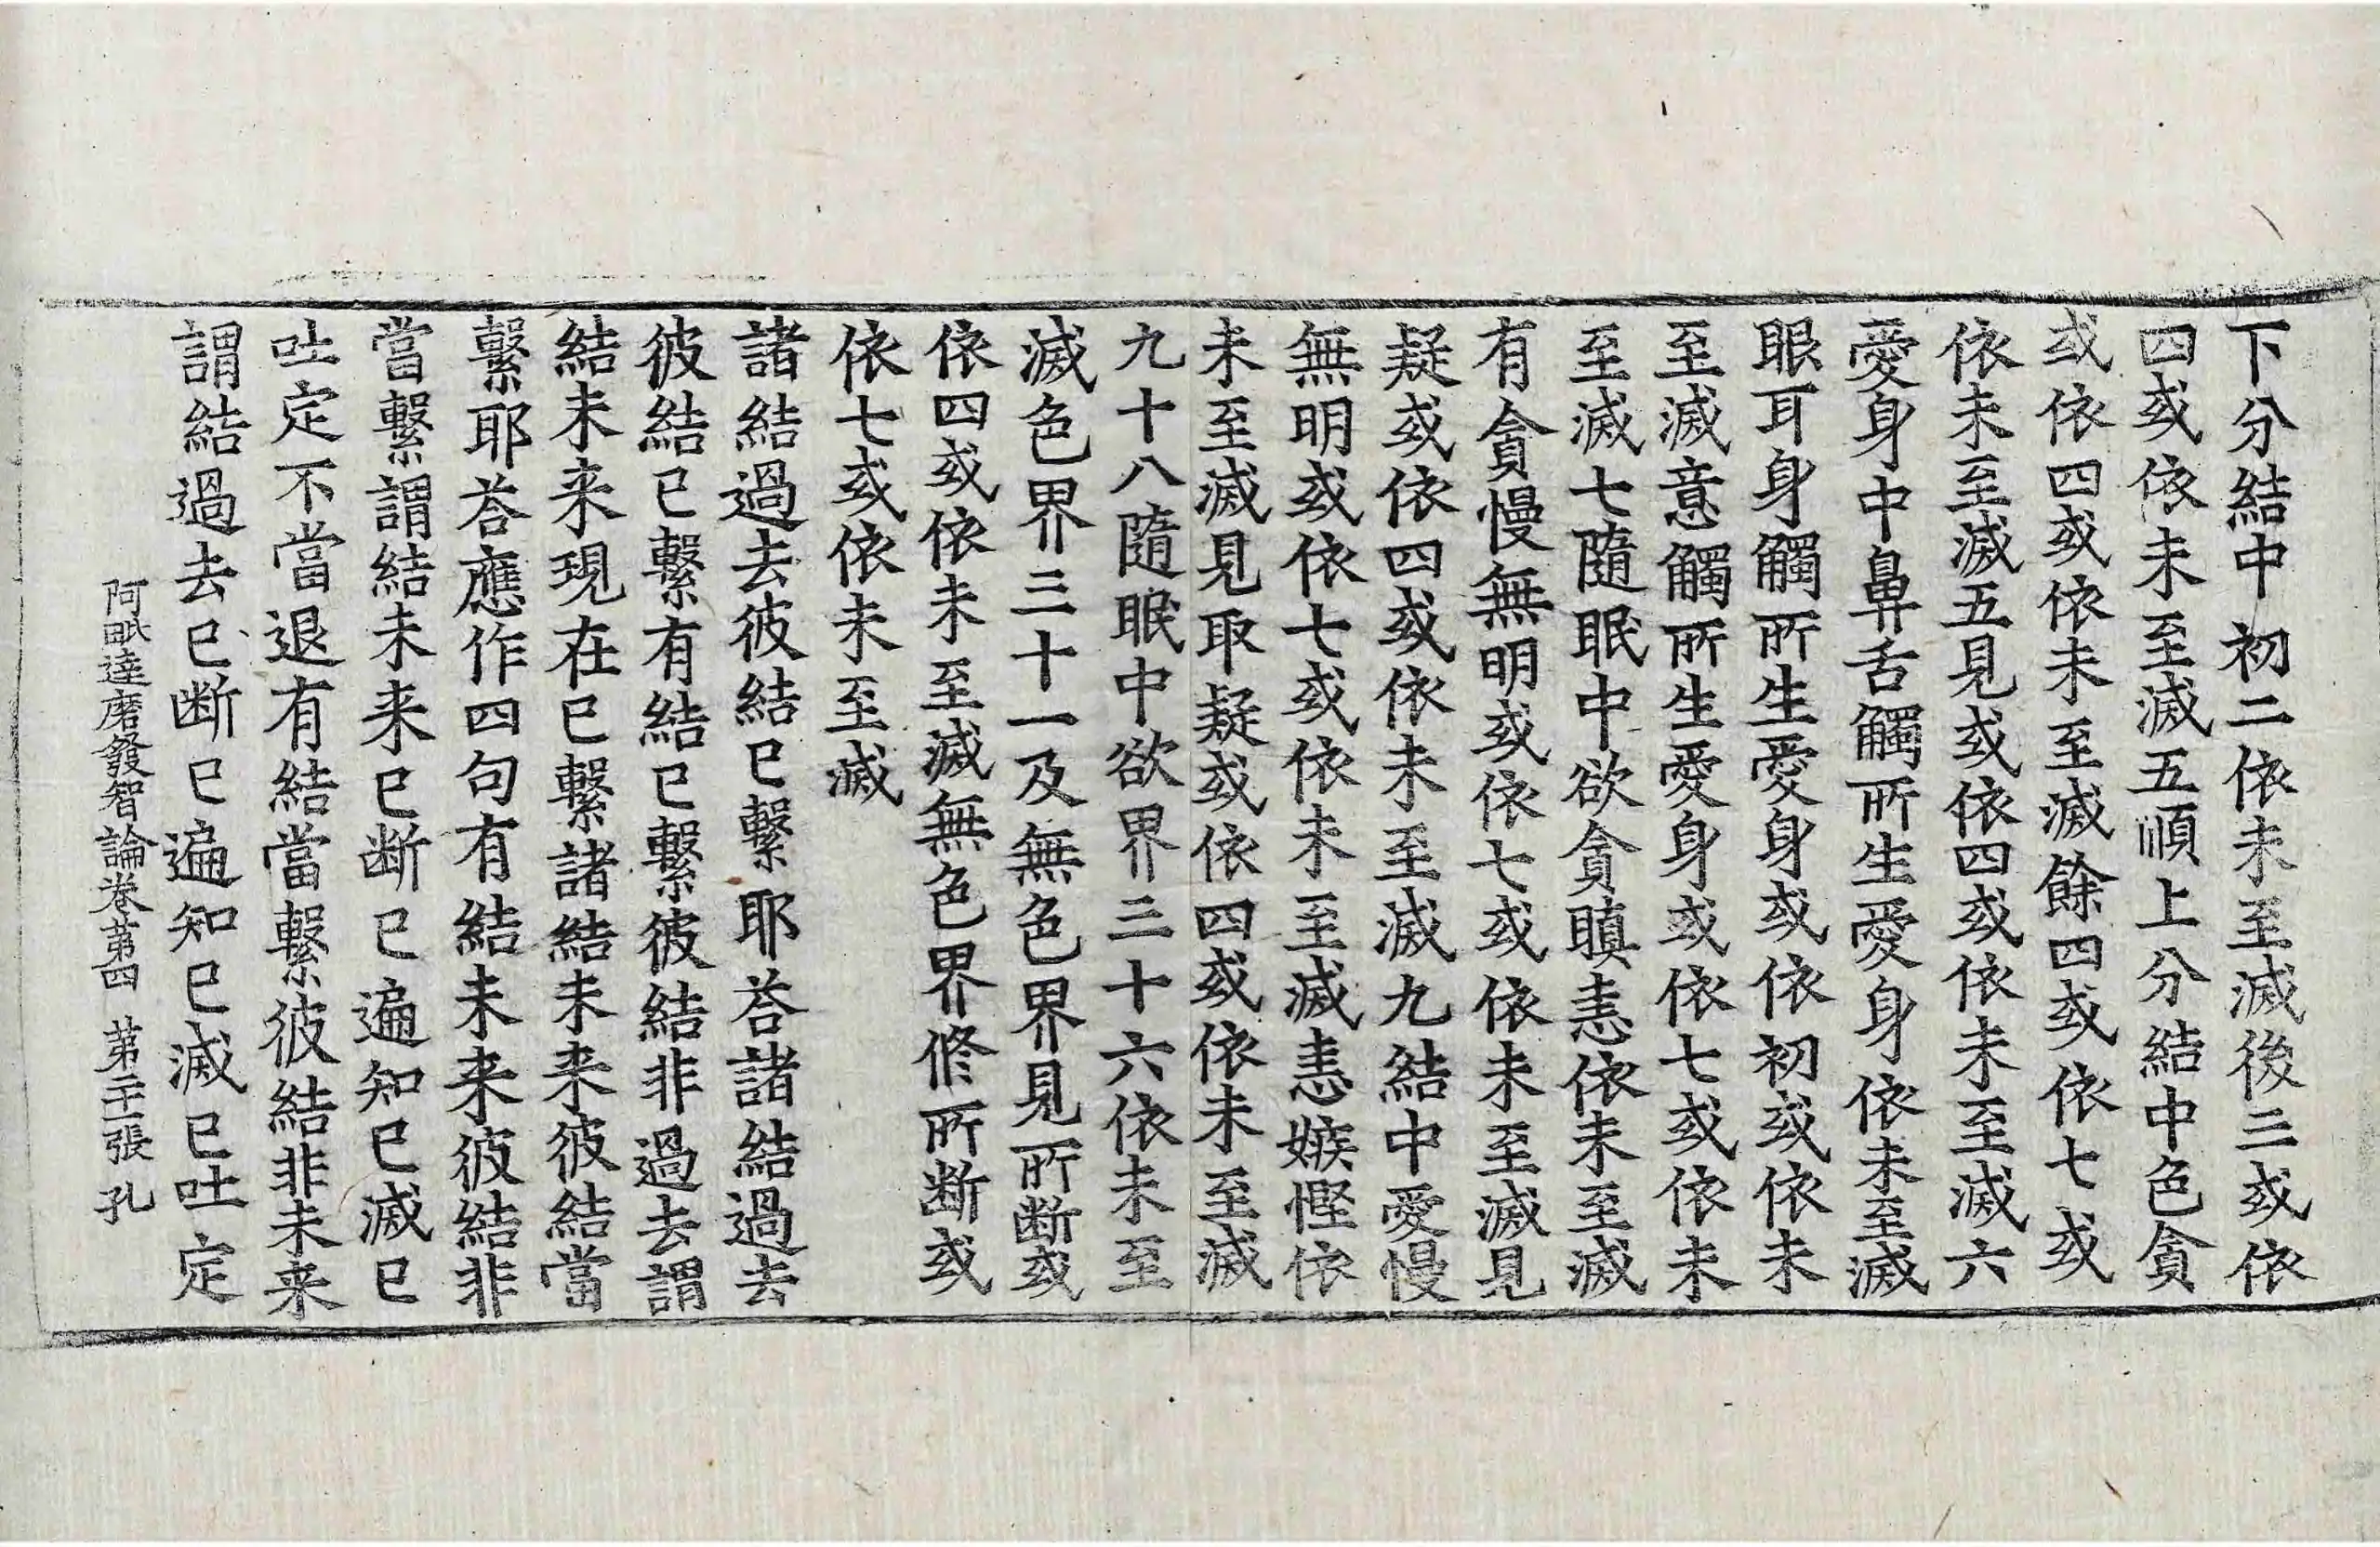 下分結中初二依未至滅後三或依
四或依未至滅五順上分結中色貪
或依四或依未至滅餘四或依七或
依未至滅五見或依四或依未至滅六
愛身中鼻舌觸所生愛身依未至滅
眼耳身觸所生愛身或依初或依未
至滅意觸所生愛身或依七或依未
至滅七隨眠中欲貪瞋恚依未至滅
有貪慢無明或依七或依未至滅見
疑或依四或依未至滅九結中愛慢
無明或依七或依未至滅恚嫉慳依
未至滅見取疑或依四或依未至滅
九十八隨眠中欲界三十六依未至
滅色界三十一及無色界見所断或
依四或依未至滅無色界修所断或
依七或依未至滅
諸結過去彼結已繫耶荅諸結過去
彼結已繫有結已繫彼結非過去謂
結未来現在已繫諸結未来彼結當
繫耶荅應作四句有結未来彼結非
當繫謂結未来已断已遍知已滅已
吐定不當退有結當繫彼結非未来
謂結過去已断已遍知已滅已吐定
阿毗達磨發智論卷第四 第二十一張 孔